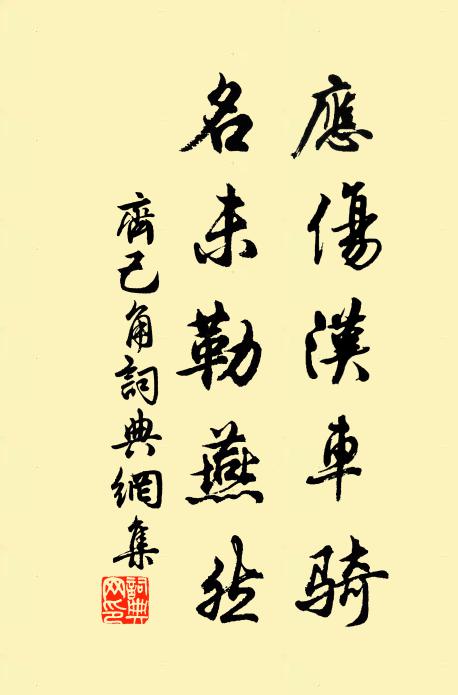 應傷漢車騎
名未勒燕然
齊己角詞典網集
詞典
網印